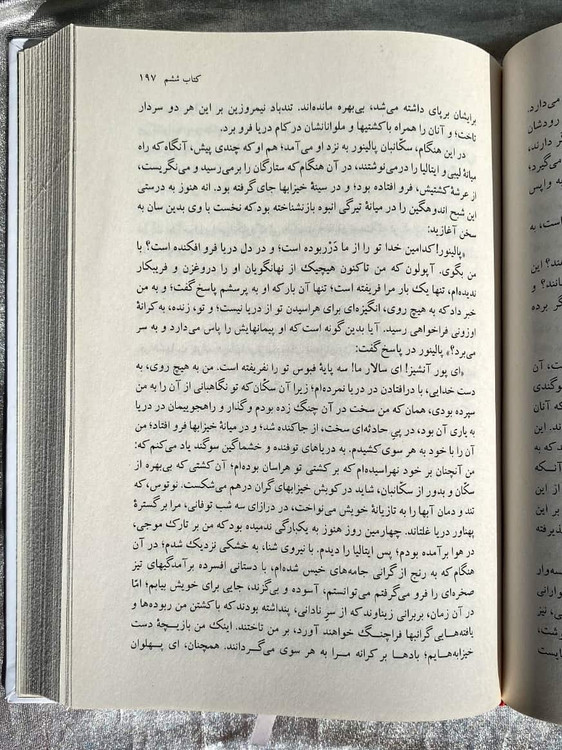 کتاب ششم ۱۹۷
برایشان برپای داشته می‌شد، بی‌بهره مانده‌اند. تندباد نیمروزین بر این هر دو سردار
تاخت؛ و آنان را همراه باکشتیها و ملوانانشان در کام دریا فرو برد.
در این هنگام، سکّانبان پالینور به نزد او می‌آمد؛ هم او که چندی پیش، آنگاه که راه
میانهٔ لیبی و ایتالیا را درمی‌نوشتند، در آن هنگام که ستارگان را برمی‌رسید و می‌نگریست،
از عرشهٔ کشتیش، فرو افتاده بود؛ و در سینهٔ خیزابها جای‌گرفته بود. انه هنوز به درستی
این شبح اندوهگین را در میانهٔ تیرگی انبوه بازنشناخته بود که نخست با وی بدین سان به
سخن آغازید:
«پالینور! کدامین خدا تو را از ما دَرْربوده است؛ و در دل دریا فرو افکنده است؟ با
من بگوی. آپولون که من تاکنون هیچیک از نهانگویان او را دروغزن و فریبکار
ندیده‌ام، تنها یک بار مرا فریفته است؛ تنها آن بار که او به پرسشم پاسخ گفت؛ و به من
خبر داد که به هیچ روی، انگیزه‌ای برای هراسیدن تو از دریا نیست؛ و تو، زنده، به کرانهٔ
اوزونی فراخواهی رسید. آیا بدین گونه است که او پیمانهایش را پاس می‌دارد و به سر
می‌برد؟» پالینور در پاسخ گفت:
«ای پور آنشیز! ای سالار ما! سه پایهٔ فبوس تو را نفریفته است. من به هیچ روی، به
دست خدایی، با درافتادن در دریا نمرده‌ام؛ زیرا آن سکّان که تو نگاهبانی از آن را به من
سپرده بودی، همان که من سخت در آن چنگ زده بودم وگذار و راهجوییمان در دریا
به یاری آن بود، در پیِ حادثه‌ای سخت، از جاکنده شد؛ و در میانهٔ خیزابها فرو افتاد؛ من
آن را با خود به هر سوی کشیدم. به دریاهای توفنده و خشماگین سوگند یاد می‌کنم که:
من آنچنان بر خود نهراسیده‌ام که بر کشتی تو هراسان بوده‌ام؛ آن کشتی که بی‌بهره از
سکّان و بدور از سکّانبان، شاید در کوبش خیزابهای گران درهم می‌شکست. نوتوس، که
تند و دمان آبها را به تازیانهٔ خویش می‌نواخت، در درازای سه شب توفانی، مرا بر گسترهٔ
پهناور دریا غلتاند. چهارمین روز هنوز به یکبارگی ندمیده بود که من بر تارک موجی،
در هوا برآمده بودم؛ پس ایتالیا را دیدم. با نیروی شنا، به خشکی نزدیک شدم؛ در آن
هنگام که به رنج از گرانی جامه‌های خیس شده‌ام، با دستانی افسرده برآمدگیهای تیز
صخره‌ای را فرو می‌گرفتم می‌توانستم، آسوده و بی‌گزند، جایی برای خویش بیابم؛ امّا
در آن زمان، بربرانی زیناوند که از سرِ نادانی، پنداشته بودند که باکشتن من ربوده‌ها و
یافته‌هایی گرانبها فراچنگ خواهند آورد، بر من تاختند. اینک من بازیچهٔ دست
خیزابه‌هایم؛ بادها بر کرانه مرا به هر سوی می‌گردانند. همچنان، ای پهلوان